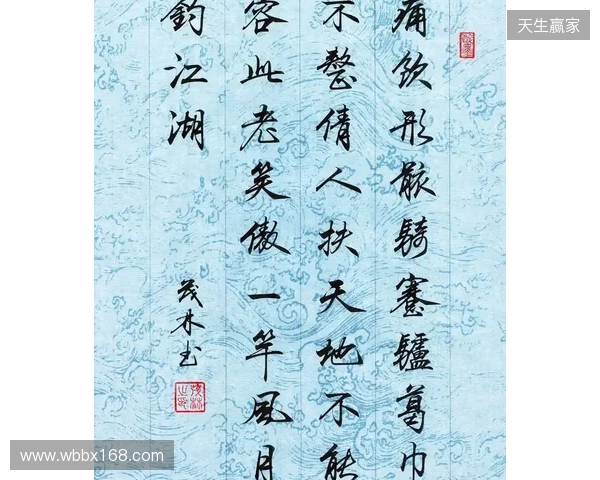 天生赢家
痛饮形骸騎蹇驢葛巾
不整倩人扶天地不能
容此老笑傲一竿風月
釣江湖
茂林书
www.wbbx168.com